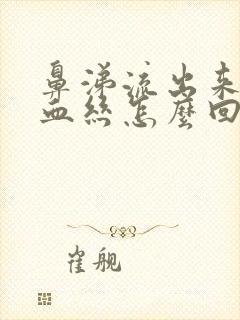 鼻涕流出来
血丝怎麼回
崔舰